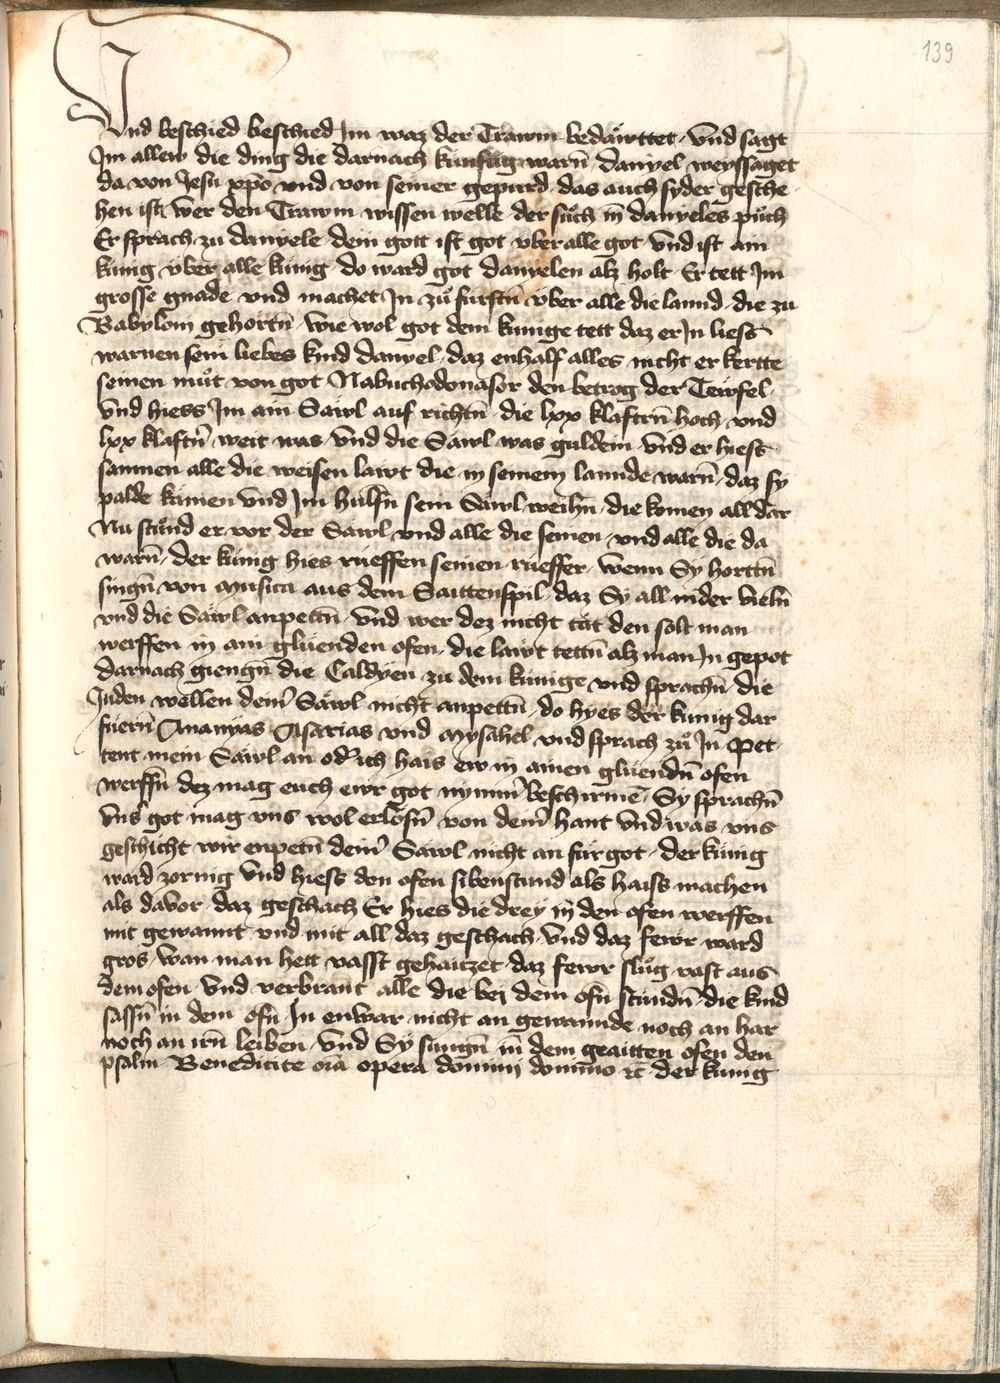 139
Vnd beschied beschied Im waz der Trawm bedäwttet · vnd sagt
Im allew die ding die darnach kunftig warñ · danyel weyssaget
da von Jesu xp̄o vnd von seiner gepurd · das auch syder gesche
hen ist · wer den Trawm wissen welle der sůch in̄ danyeles půch
Er sprach zu danyele dem gott ist got vber alle got vnd ist ain
künig über alle künig · do ward got danyelen alz holt · Er tett Im
grosse gnade vnd machet In zů fürstn̄ über alle die lannd · die zu
Babylonj gehortn̄ · wie wol got dem kunige tett daz er In liess
warnen sein liebes kind danyel · daz enhalf alles nicht er kertte
seinen můt von got Nabuchodonasor den betrog der Tewfel ·
vnd hiess Im ain Säwl auf richtn̄ · die lxx klaftrn̄ hoch · vnd
lxx klaftn̄ weit was vnd die Sawl was guldein · vnd er hiess
samnen alle die weisen läwt die in seinem lannde warn̄ · daz sy
palde kämen vnd Im hulfn̄ sein Säwl weihn̄ · die komen all dar
Nu stůnd er vor der Sawl vnd alle die seinen · vnd alle die da
warn̄ · der künig hies rueffen seinen rueffer · wenn Sy horttn̄
singn̄ von Musica aus dem Saittenspil · daz Sy all nider vieln̄
vnd die Säwl anpettn̄ · vnd wer dez nicht tät den solt man
werffen in ain glüenden ofen · die läwt tettn̄ alz man In gepot
darnach giengn̄ die Caldyen zu dem künige vnd sprachn̄ · die
Juden wellen dein̄ Säwl nicht anpettn̄ · do hyes der kunig dar
füern̄ Ananyas Asarias vnd Mysahel vnd sprach zů In · Pet
tent mein Säwl an od̄ ich hais ew in ainen glüendn̄ ofen
werffn̄ dez mag euch ewr got nymm̄ beschirmē · Sy sprachn̄
vns̄ got mag vns wol erlösn̄ von dein̄ hant vnd was vns
geschicht wir enpetn̄ dein̄ Säwl nicht an für got · der künig
ward zornig vnd hiess den ofen sibenstund als haiss machen
als davor · daz geschach Er hies die drey in̄ den ofen werffen
mit gewannt vnd mit all · daz geschach vnd daz fewr ward
gros · wan man hett vasst gehaitzet · daz fewr slůg vast aus
dem ofen vnd verbrant alle die bei dem ofn̄ stundn̄ · die kind
sassn̄ in dem ofn̄ In enwar nicht an gewannde noch an har
noch an irn̄ leiben · vnd Sy sungn̄ in̄ dem geaitten ofen den
psalm Benedicite om̄ia opera dominj domino ꝛc der kunig